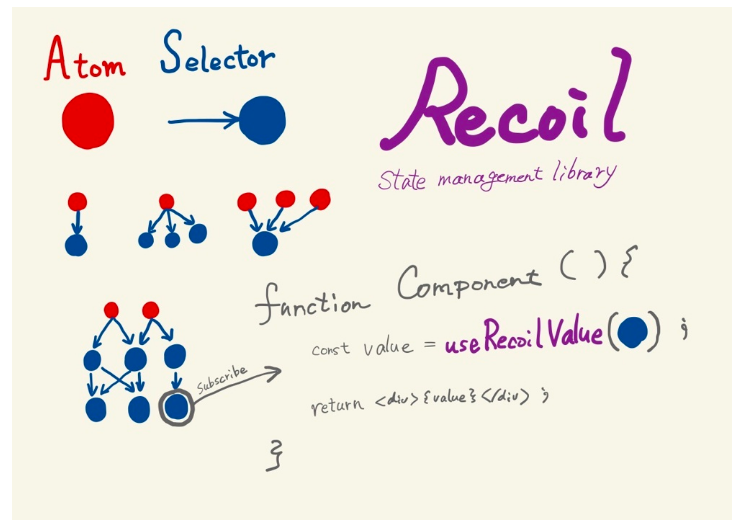 Atom
Selector
Recoil
State management library
function Component () {
const value = useRecoilValue( ) ;
subscribe
return <div>{value}</div> ;
}